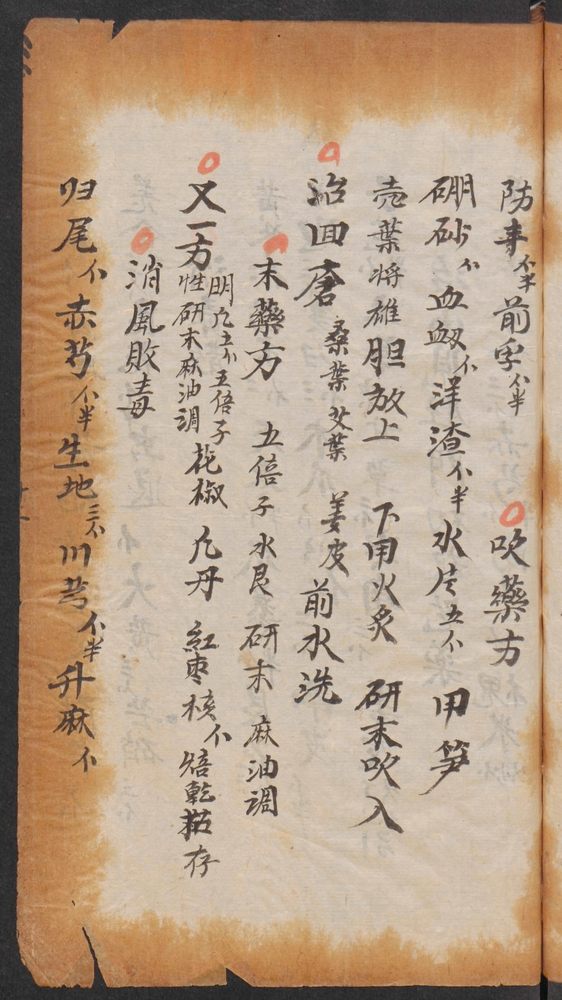 防丰个半 前字个半 吹藥方
硼砂个 血衂个 洋渣个半 水片五个 用笋
壳葉将雄胆放上 下用火炙 研末吹入
治回瘡 桑葉 艾葉 姜皮 前水洗
末藥方 五倍子 水艮 研末 麻油調
又一方 明凢五个 五倍子 花椒 凢丹 紅枣核个 焙乾 存
性研末麻油調
消風敗毒
归尾个 赤芍个半 生地三个 川芎个半 升麻个